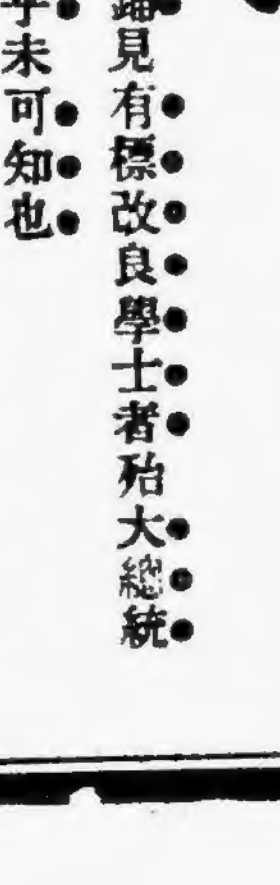 見有標改良學士者殆大總統
乎未可知也